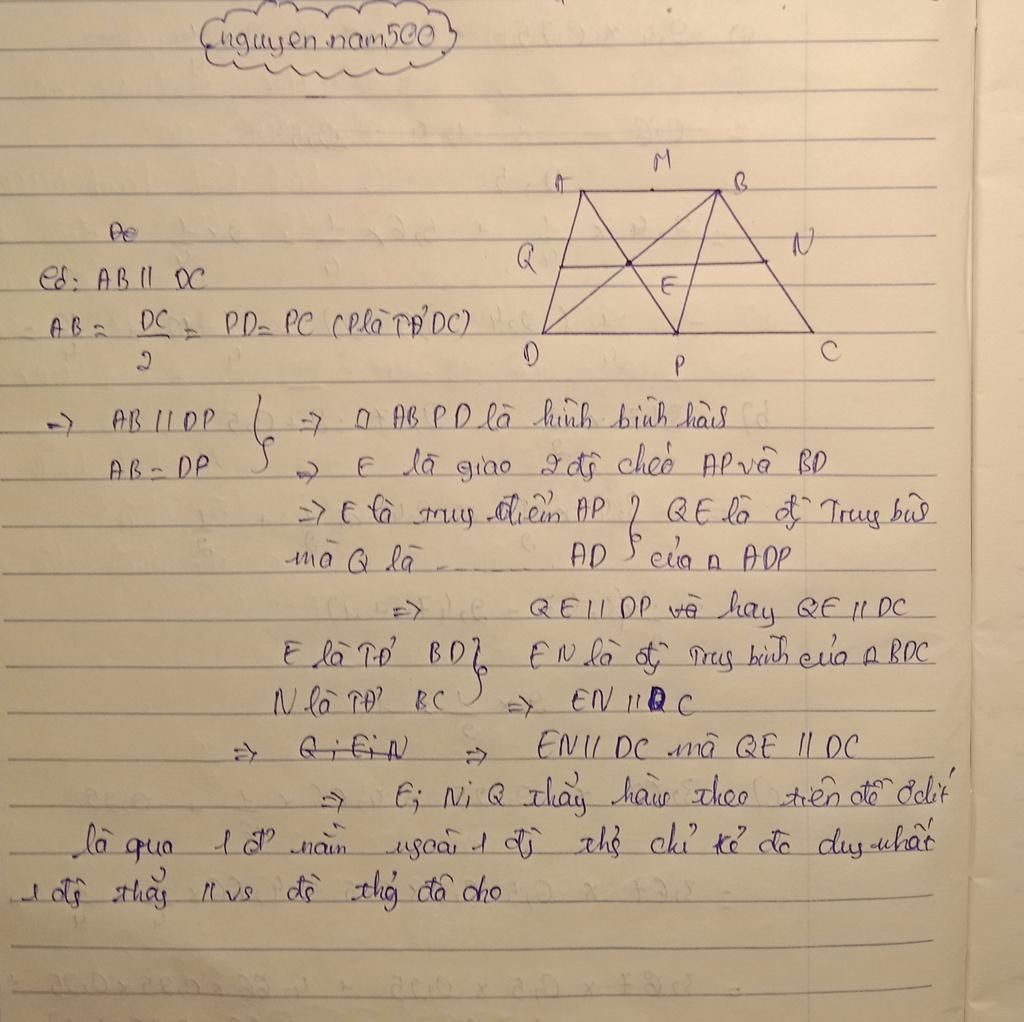 nguyen.nam500
M
A B
Q N
E
D P C
Ae
Có: AB // DC
AB = DC/2 = PD = PC (P là TĐ' DC)
=> AB // DP } => □ ABPD là hình bình hàng
AB = DP => E là giao 2 đg chéo AP và BD
=> E là trung điểm AP } QE là đg Trung bình
mà Q là ........ AD của △ ADP
=> QE // DP và hay QE // DC
E là TĐ' BD } EN là đg Trung bình của △ BDC
N là TĐ' BC => EN // DC
=> Q; E; N => EN // DC mà QE // DC
=> E; N; Q thẳng hàng theo tiên đề Ơclit
là qua 1 đ' nằm ngoài 1 đg thg chỉ kẻ đc duy nhất
1 đg thẳng // vs đg thg đã cho